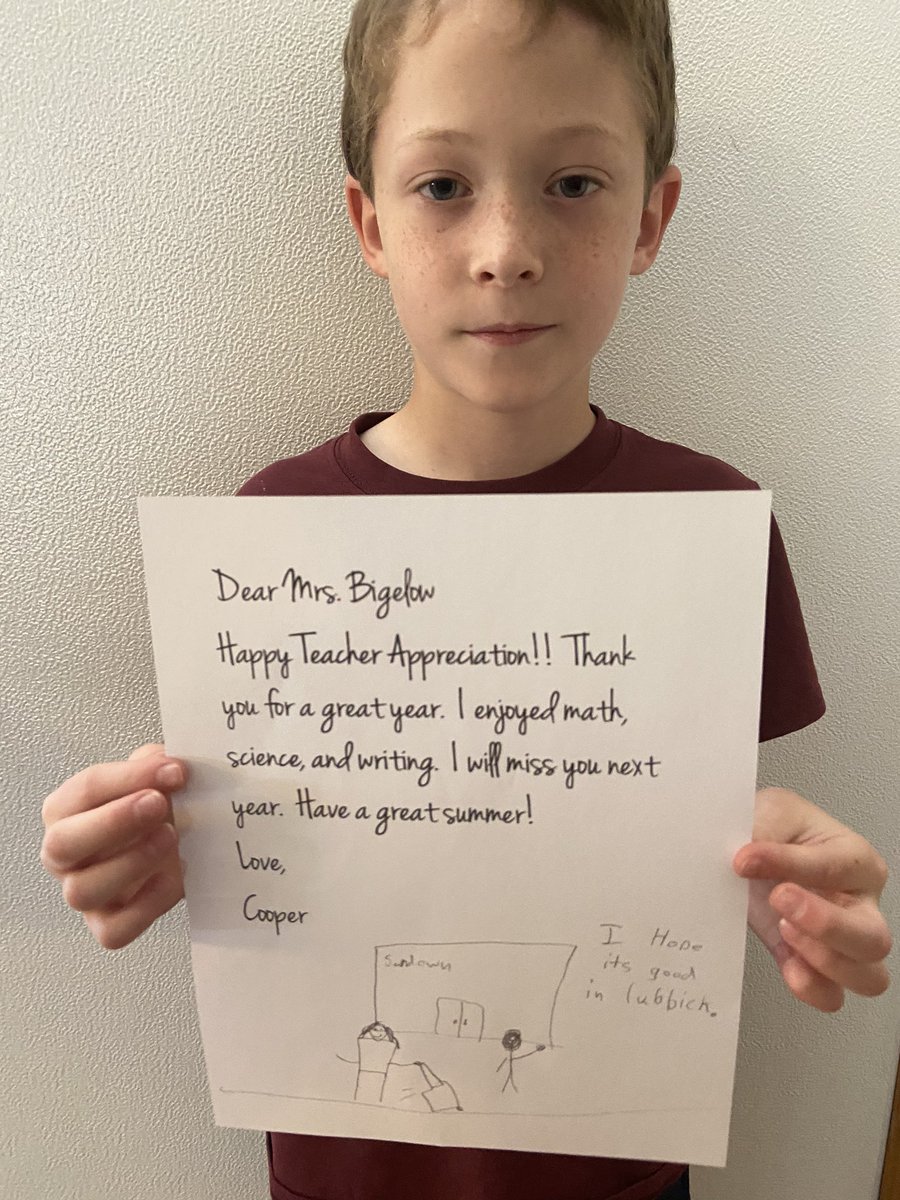 Dear Mrs. Bigelow
Happy Teacher Appreciation!! Thank
you for a great year. I enjoyed math,
science, and writing. I will miss you next
year. Have a great summer!
Love,
Cooper
Sundown
I Hope
its good
in lubbick.